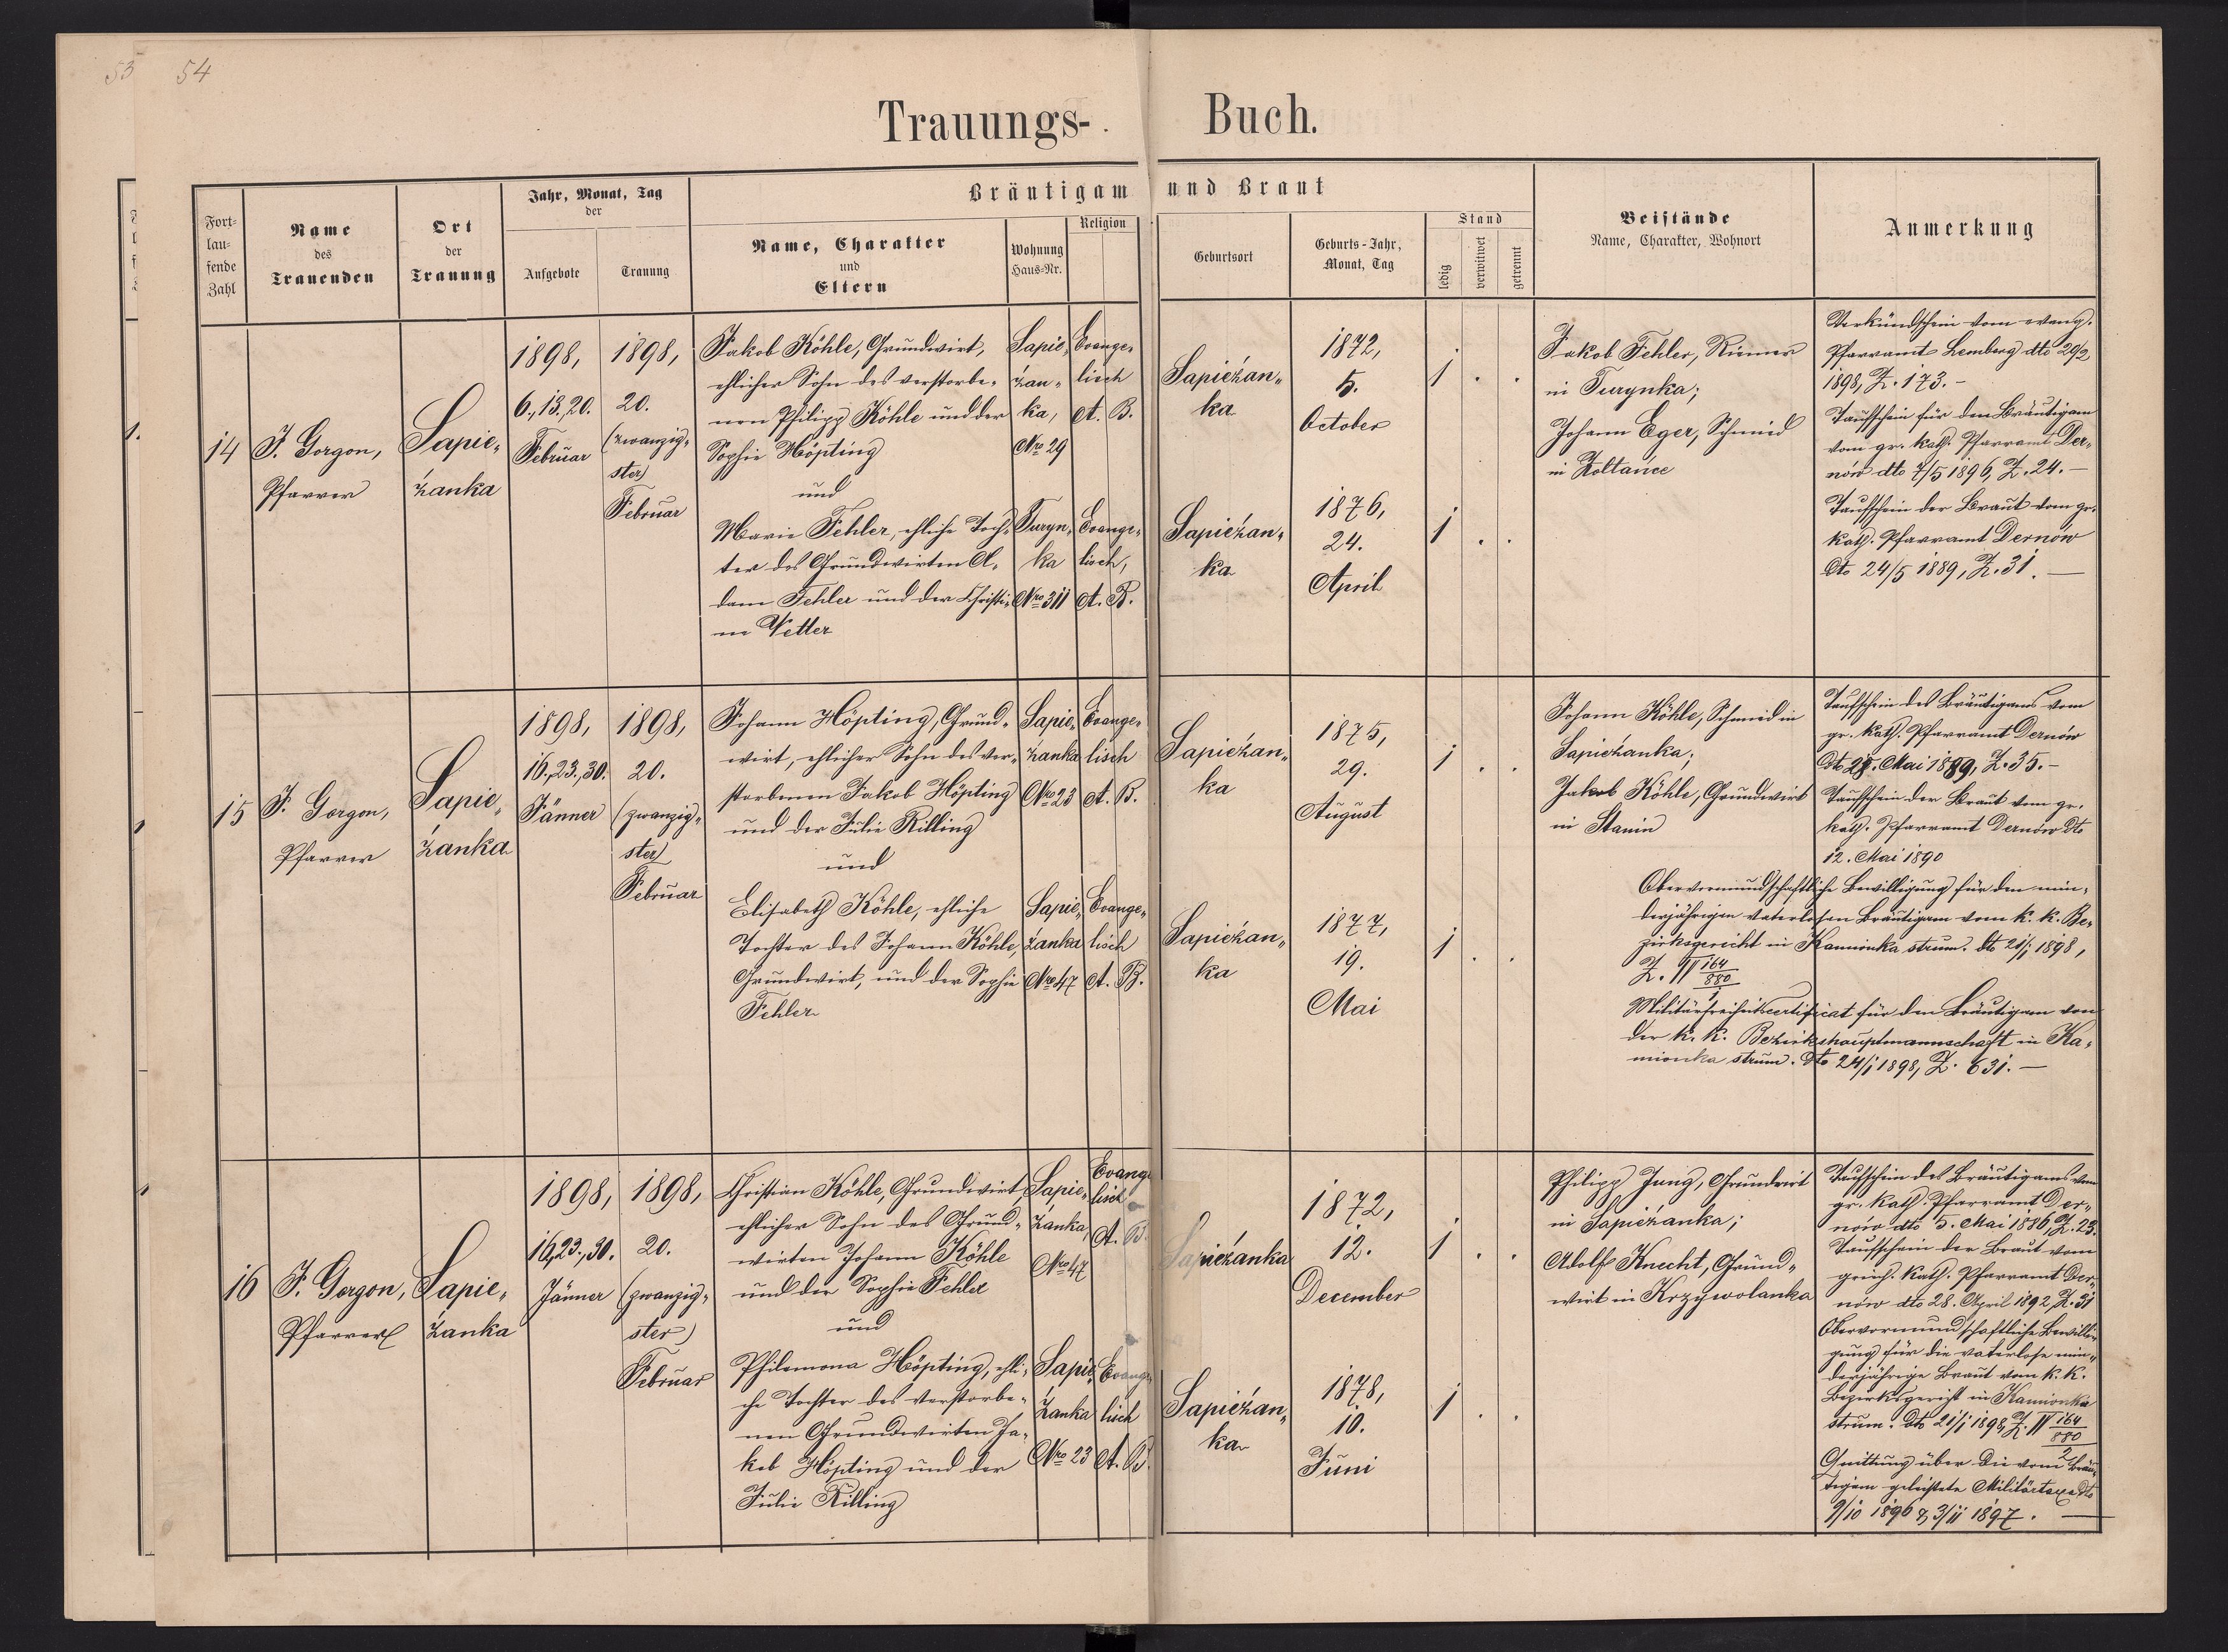 53 54
Trauungs- Buch.
Fort-
lau-
fende
Zahl
Name
des
Trauenden
Ort
der
Trauung
Jahr, Monat, Tag
der
Aufgebote
Trauung
Bräutigam und Braut
Name, Charakter
und
Eltern
Wohnung
Haus-Nr.
Religion
Geburtsort
Geburts-Jahr,
Monat, Tag
Stand
ledig
verwitwet
getrennt
Beistände
Name, Charakter, Wohnort
Anmerkung
14
F. Gorgon,
Pfarrer
Sapie„
żanka
1898,
6., 13., 20.
Februar
1898,
20.
(zwanzig„
ster)
Februar
Jakob Köhle, Grundwirt,
ehlicher Sohn des verstorbe„
nen Philipp Köhle und der
Sophie Höpting
und
Marie Fehler, ehliche Toch„
ter des Grundwirten A„
dam Fehler und der Christi„
ne Vetter
Sapie„
żan„
ka,
Nro 29
Turyn„
ka
Nro 311
Evange„
lisch
A. B.
Evange„
lisch,
A. B.
Sapieżan„
ka
Sapieżan„
ka
1872,
5.
October
1876,
24.
April
1 . .
1 . .
Jakob Fehler, Riemer
in Turynka;
Johann Eger, Schmied
in Żoltańce
Verkündschein vom evang.
Pfarramt Lemberg dto 20/2
1898, Z. 173. -
Taufschein für den Bräutigam
vom gr. kath. Pfarramt Der„
nów dto 7/5 1896, Z. 24. —
Taufschein der Braut vom gr.
kath. Pfarramt Dernów
dto 24/5 1889, Z. 31. —
15
F. Gorgon,
Pfarrer
Sapie„
żanka
1898,
16., 23., 30.
Jänner
1898,
20.
(zwanzig„
ster)
Februar
Johann Höpting, Grund„
wirt, ehlicher Sohn des ver„
storbenen Jakob Höpting
und der Julie Killing
und
Elisabeth Köhle, ehliche
Tochter des Johann Köhle,
Grundwirt, und der Sophie
Fehler
Sapie„
żanka
Nro 23
Sapie„
żanka
Nro 47
Evange„
lisch
A. B.
Evange„
lisch
A. B.
Sapieżan„
ka
Sapieżan„
ka
1875,
29.
August
1877,
19.
Mai
1 . .
1 . .
Johann Köhle, Schmied in
Sapieżanka;
Jakob Köhle, Grundwirt
in Stanin
Taufschein des Bräutigams vom
gr. kath. Pfarramt Dernów
dto Mai 1889, Z. 35. -
Taufschein der Braut vom gr.
kath. Pfarramt Dernów dto
12. Mai 1890
Obervormundschaftliche Bewilligung für den min„
derjährigen vaterlosen Bräutigam vom k. k. Be„
zirksgericht in Kamionka strum. dto 21/1 1898,
Z. IV 164/880
1
Militärfreiheitscertificat für den Bräutigam von
der k. k. Bezirkshauptmannschaft in Ka„
mionka strum. dto 24/1 1898, Z. 631. —
16
F. Gorgon,
Pfarrer
Sapie„
żanka
1898,
16., 23., 30.
Jänner
1898,
20.
(zwanzig„
ster)
Februar
Christian Köhle, Grundwirt,
ehlicher Sohn des Grund„
wirten Johann Köhle
und der Sophie Fehler
und
Philomena Höpting, ehli„
che Tochter des verstorbe„
nen Grundwirten Ja„
kob Höpting und der
Julie Killing
Sapie„
żanka,
Nro 47
Sapie„
żanka
Nro 23
Evange
lisch
A. B.
Evange
lisch
A. B.
Sapieżanka
Sapieżan„
ka
1872,
12.
December
1878,
10.
Juni
1 . .
1 . .
Philipp Jung, Grundwirt
in Sapieżanka;
Adolf Knecht, Grund„
wirt in Krzywolanka
Taufschein des Bräutigams vom
gr. kath. Pfarramt Der„
nów dto 5. Mai 1886, Z. 23.
Taufschein der Braut vom
griech. kath. Pfarramt Der„
nów dto 28. April 1892, Z. 31
Obervormundschaftliche Bewilli„
gung für die vaterlose min„
derjährige Braut vom k. k.
Bezirksgericht in Kamionka
strum. dto 21/1 1898, Z. IV 164/880
2
Quittung über die vom Bräu„
tigam geleistete Militärtaxe dto
9/10 1896 & 3/11 1897. —